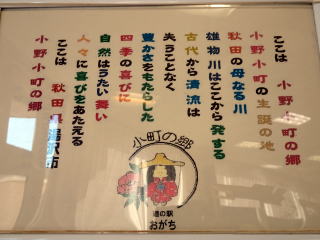 ここは　小野小町の郷
小野小町の生誕の地
秋田の母なる川
雄物川はここから発する
古代から清流は
失うことなく
豊かさをもたらした
四季の喜びに
自然はうたい舞い
人々に喜びをあたえる
ここは　秋田県湯沢市
小野小町の郷
小町の郷
道の駅
おがち